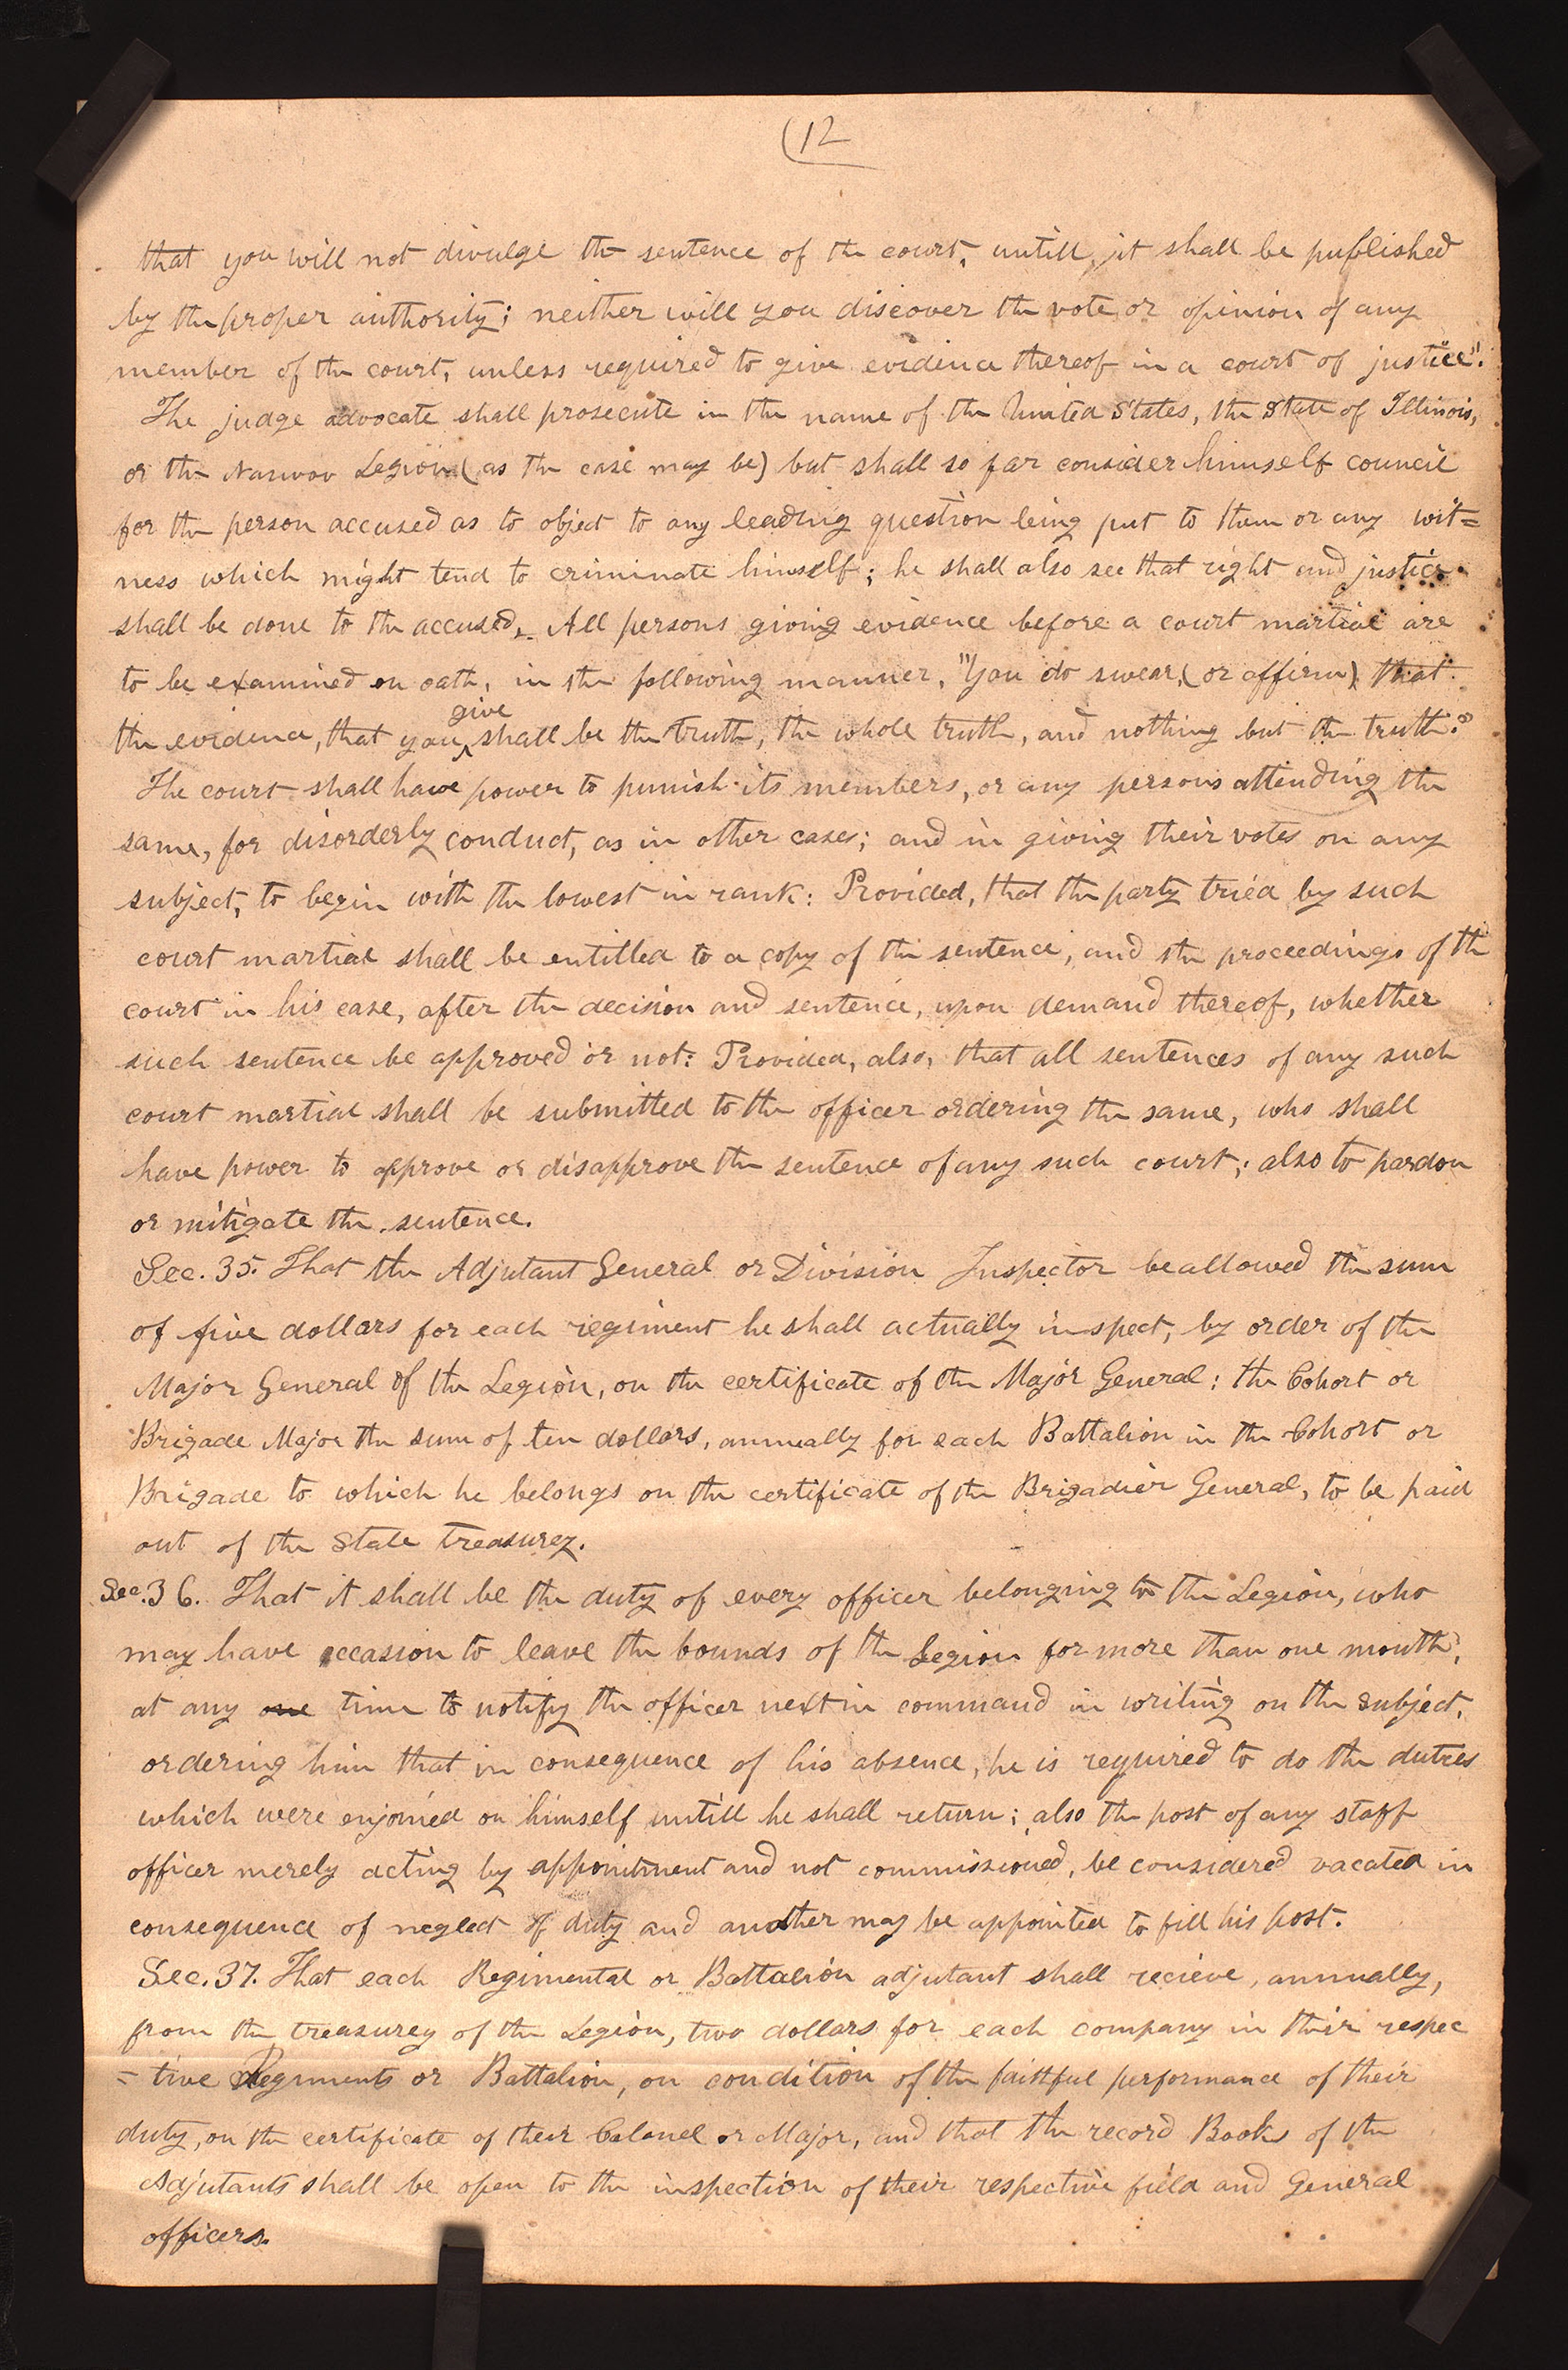 (12
that you will not divulge the sentence of the court, untill, it shall be published
by the proper authority; neither will you discover the vote, or opinion of any
member of the court, unless required to give evidence thereof in a court of justice".
The judge advocate shall prosecute in the name of the United States, the State of Illinois,
or the Nauvoo Legion (as the case may be) but shall so far consider himself council
for the person accused as to object to any leading question being put to them or any wit=
ness which might tend to criminate himself; he shall also see that right and justice
shall be done to the accused,- All persons giving evidence before a court martial are
to be examined on oath, in the following manner, "You do swear, (or affirm) that
the evidence, that you give shall be the truth, the whole truth, and nothing but the truth."
The court shall have power to punish its members, or any persons attending the
same, for disorderly conduct, as in other cases; and in giving their votes on any
subject, to begin with the lowest in rank: Provided, that the party tried by such
court martial shall be entitled to a copy of the sentence, and the proceedings of the
court in his case, after the decision and sentence, upon demand thereof, whether
such sentence be approved or not: Provided, also, that all sentences of any such
court martial shall be submitted to the officer ordering the same, who shall
have power to approve or disapprove the sentence of any such court; also to pardon
or mitigate the sentence.
Sec. 35. That the Adjutant General or Division Inspector be allowed the sum
of five dollars for each regiment he shall actually inspect, by order of the
Major General of the Legion, on the certificate of the Major General: the Cohort or
Brigade Major the sum of ten dollars, annually for each Battalion in the Cohort or
Brigade to which he belongs on the certificate of the Brigadier General, to be paid
out of the State treasurey.
Sec. 36. That it shall be the duty of every officer belonging to the Legion, who
may have occasion to leave the bounds of the Legion for more than one month,
at any one time to notify the officer next in command in writing on the subject,
ordering him that in consequence of his absence, he is required to do the duties
which were enjoined on himself untill he shall return; also the post of any staff
officer merely acting by appointment and not commissioned, be considered vacated in
consequence of neglect of duty and another may be appointed to fill his post.
Sec. 37. That each Regimental or Battalion adjutant shall recieve, annually,
from the treasurey of the Legion, two dollars for each company in their respec
= tive Regiments or Battalion, on condition of the faithful performance of their
duty, on the certificate of their Colonel or Major, and that the record Books of the
Adjutants shall be open to the inspection of their respective field and General
officers.